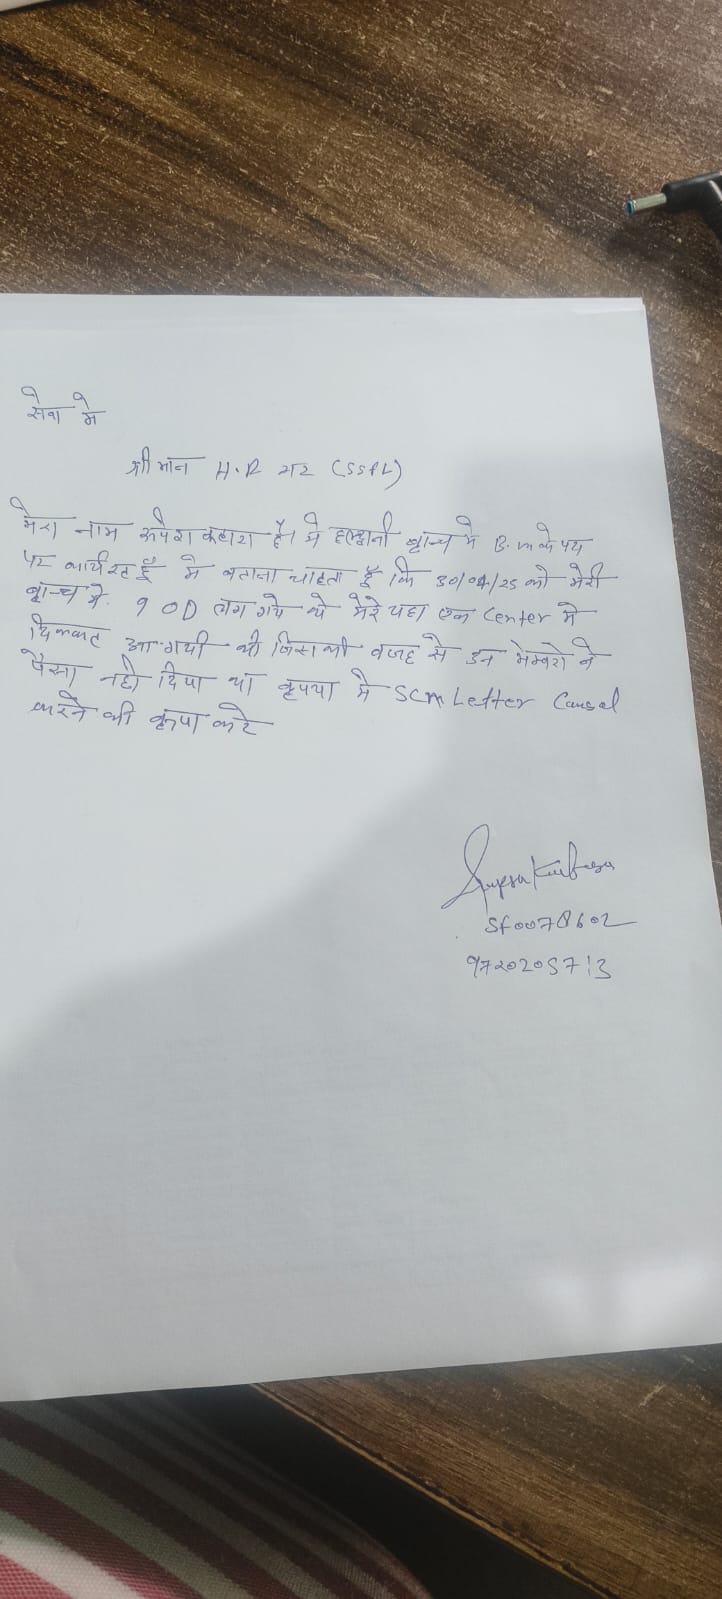 सेवा मे
श्री मान H.R सर (SSFL)
मेरा नाम रूपेश कहारा है। मे हल्द्वानी ब्रान्च मे B.M के पद
पर कार्यरत हूँ मे बताना चाहता हूँ कि 30/04/25 को मेरी
ब्रान्च मे. 9 OD लग गये थे मेरे यहा एक Center मे
दिक्कट आ गयी थी जिसकी वजह से उन मेम्बरो ने
पैसा नही दिया था कृपया मे SCM Letter Cansal
करने की कृपा करे
SF0078602
9720205713